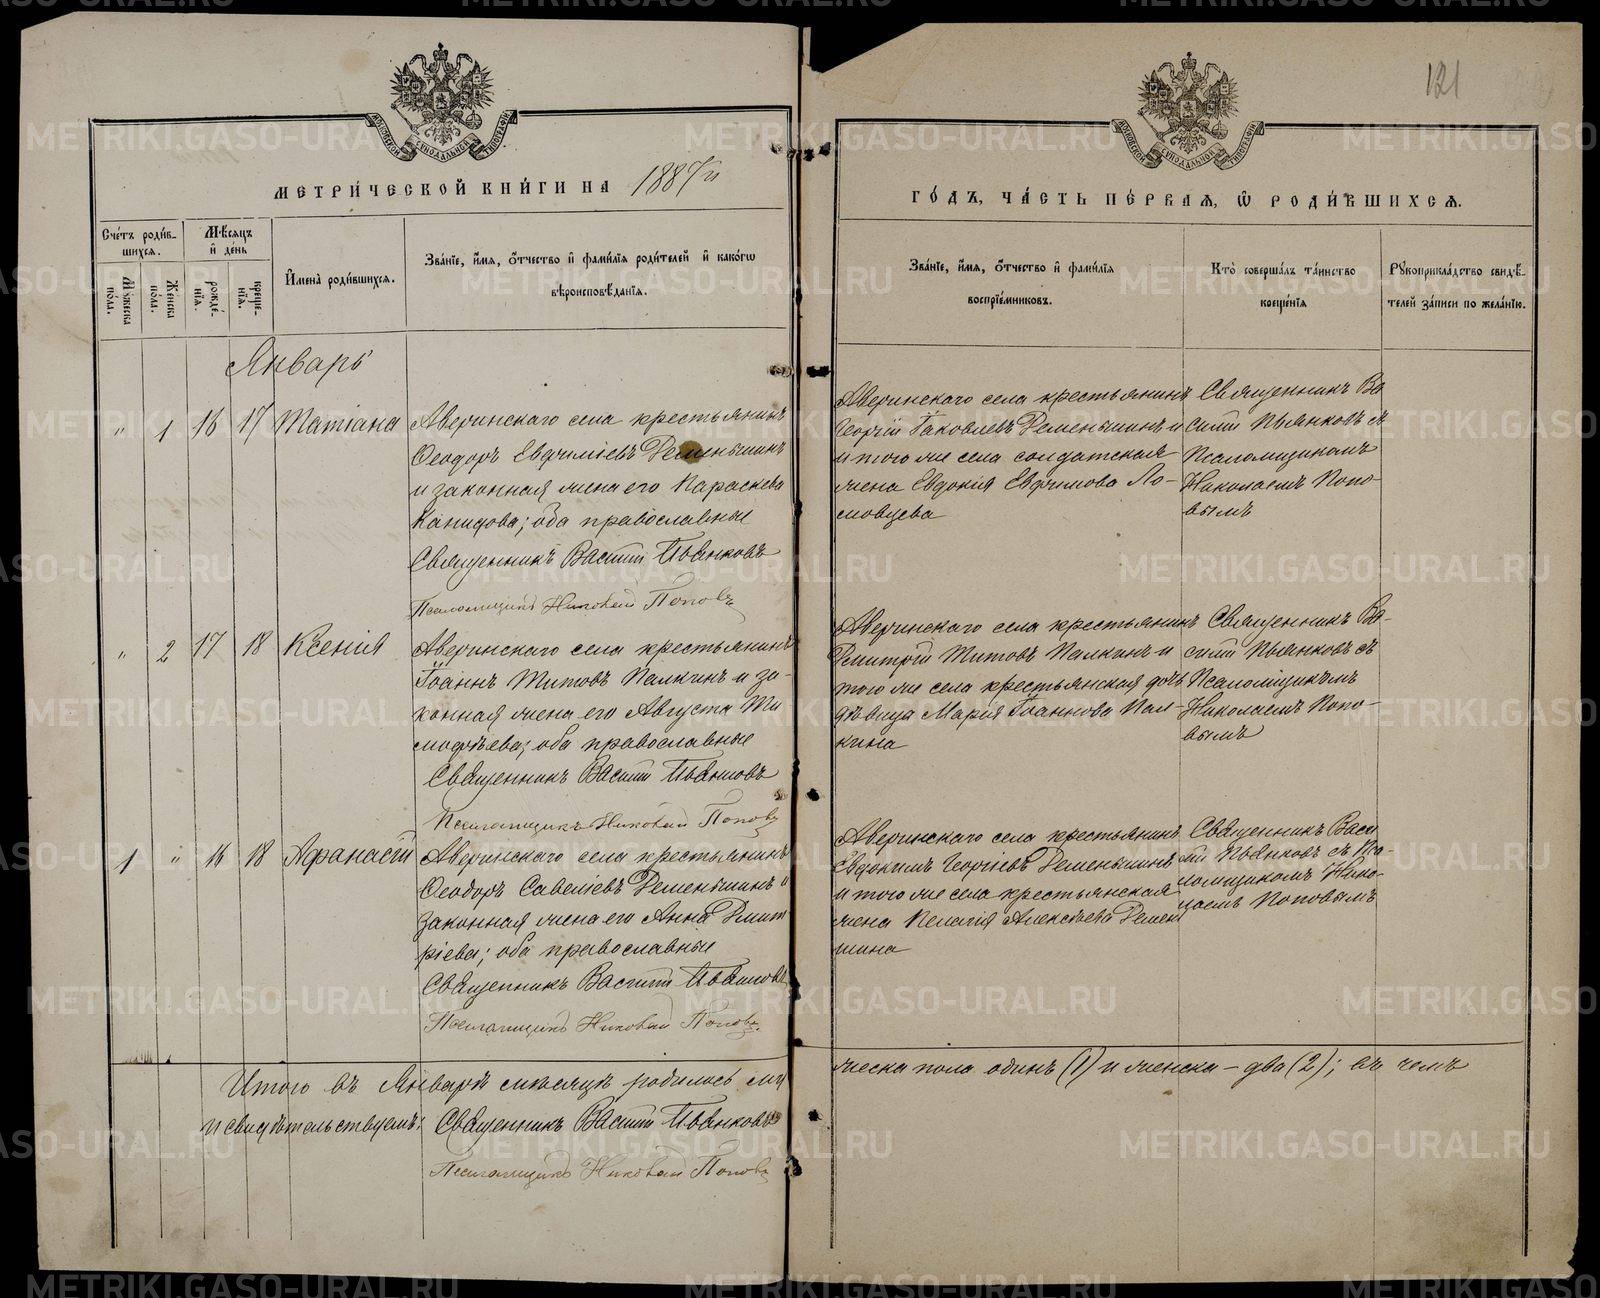 121
МЕТРИ́ЧЕСКОЙ КНИ́ГИ НА 1887й
ГО́ДЪ, ЧА́СТЬ ПЕ́РВАѦ, Ѡ РОДИ́ВШИХСѦ.
Сче́тъ роди́в-
шихся.
Мѣ́сяцъ
и де́нь
Мужеска
по́ла.
Женска
по́ла.
рожде́-
нїя.
креще́-
нїя.
Имена̀ роди́вшихся.
Зва́нїе, и́мя, о́тчество и фами́лїя роди́телей и како́гѡ
вѣроисповѣ́данїя.
Зва́нїе, и́мя, о́тчество и фами́лїя
воспрїе́мниковъ.
Кто̀ соверша́лъ та́инство
креще́нїя
Рꙋкоприкла́дство свидѣ́-
телей за́писи по жела́нїю.
Январь
" 1 16 17 Татіана
Аверинскаго села крестьянинъ
Ѳеодоръ Евфиміевъ Ременьшинъ
и законная жена его Параскева
Канидова; оба православные
Священникъ Василій Пьянковъ
Псаломщикъ Николай Поповъ
Аверинскаго села крестьянинъ
Георгій Іаковлевъ Ременьшинъ и
и того же села солдатская
жена Евдокія Евфимова Ло-
мовцева
Священникъ Ва
силій Пьянковъ съ
Псаломщикомъ
Николаемъ Попо-
вымъ
" 2 17 18 Ксенія
Аверинскаго села крестьянинъ
Іоаннъ Титовъ Палкинъ и за-
конная жена его Августа Ти
мофѣева; оба православные
Священникъ Василій Пьянковъ
Псаломщикъ Николай Поповъ
Аверинскаго села крестьянинъ
Димитрій Титовъ Палкинъ и
того же села крестьянская дочь
дѣвица Марія Іоаннова Пал-
кина
Священникъ Ва-
силій Пьянковъ съ
Псаломщикомъ
Николаемъ Попо-
вымъ
1 " 16 18 Афанасій
Аверинскаго села крестьянинъ
Ѳеодоръ Савеліевъ Ременьшинъ и
законная жена его Анна Димит
ріева; оба православные
Священникъ Василій Пьянковъ
Псаломщикъ Николай Поповъ.
Аверинскаго села крестьянинъ
Евдокимъ Георгіевъ Ременьшинъ
и того же села крестьянская
жена Пелагія Алексѣева Ремен
шина
Священникъ Васи
лій Пьянковъ съ Пса-
ломщикомъ Нико-
лаемъ Поповымъ
Итого въ Январѣ мѣсяцѣ родилось му
жеска пола одинъ (1) и женска – два (2); въ чемъ
и свидѣтельствуемъ: Священникъ Василій Пьянковъ
Псаломщикъ Николай Поповъ
METRIKI.GASO-URAL.RU